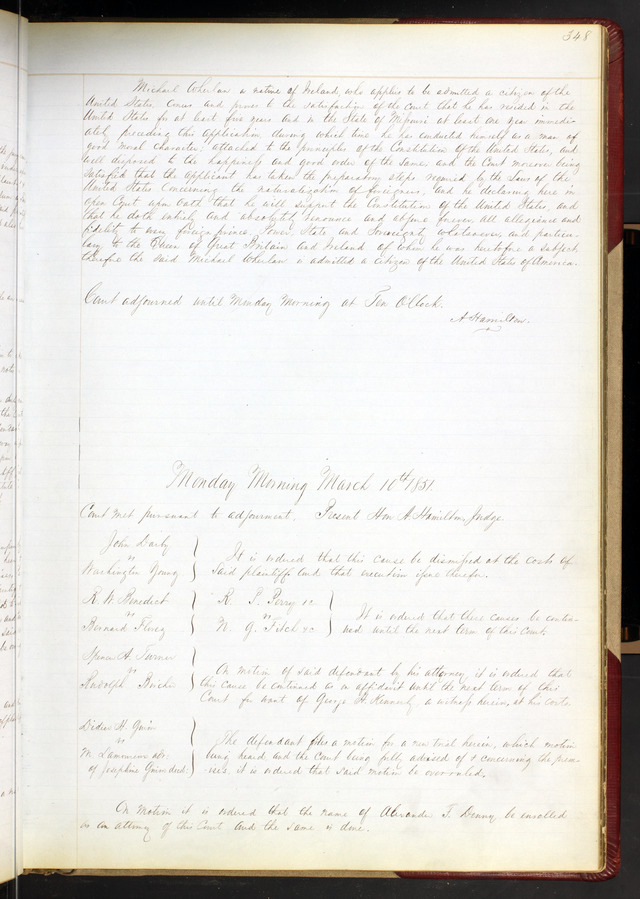 348
Michael Whelan a native of Ireland, who applies to be admitted a citizen of the
United States, comes and proves to the satisfaction of the court that he has resided in the
United States for at least five years and in the State of Missouri at least one year immedi-
ately preceding this application, during which time he has conducted himself as a man of
good moral character, attached to the principles of the Constitution of the United States, and
well disposed to the happiness and good order of the same, and the Court moreover being
satisfied that the applicant has taken the preparatory steps required by the Laws of the
United States concerning the naturalization of foreigners, and he declaring here in
open Court upon oath that he will support the Constitution of the United States, and
that he doth entirely and absolutely renounce and abjure forever all allegiance and
fidelity to every foreign prince, Power, State and Sovereignty whatsoever, and particu-
larly to the Queen of Great Britain and Ireland of whom he was heretofore a subject,
therefore the said Michael Whelan is admitted a citizen of the United States of America.
Court adjourned until Monday Morning at Ten O'Clock.
A Hamilton.
Monday Morning March 10th 1851.
Court met pursuant to adjournment, Present Hon A. Hamilton, Judge.
John Darby
vs
Washington Young
It is ordered that this cause be dismissed at the costs of
said plaintiffs and that execution issue therefor.
R. W. Benedict
vs
Bernard
R. P. Perry &c
vs
N. G. Fitch &c
It is ordered that these causes be contin-
ued until the next term of this Court.
A. Turner
vs
Rudolph
On motion of said defendant by his attorney it is ordered that
this cause be continued on an affidavit until the next term of this
Court for want of George H. Kennerly a witness herein, at his costs.
Didier H. Guion
vs
M. Lamoureux adr.
of Josephine Guion decd.
The defendant files a motion for a new trial herein, which motion
being heard and the Court being fully advised of & concerning the prem-
ises, it is ordered that said motion be overruled.
On motion it is ordered that the name of Alexander T. Denny be enrolled
as an attorney of this Court and the same is done.